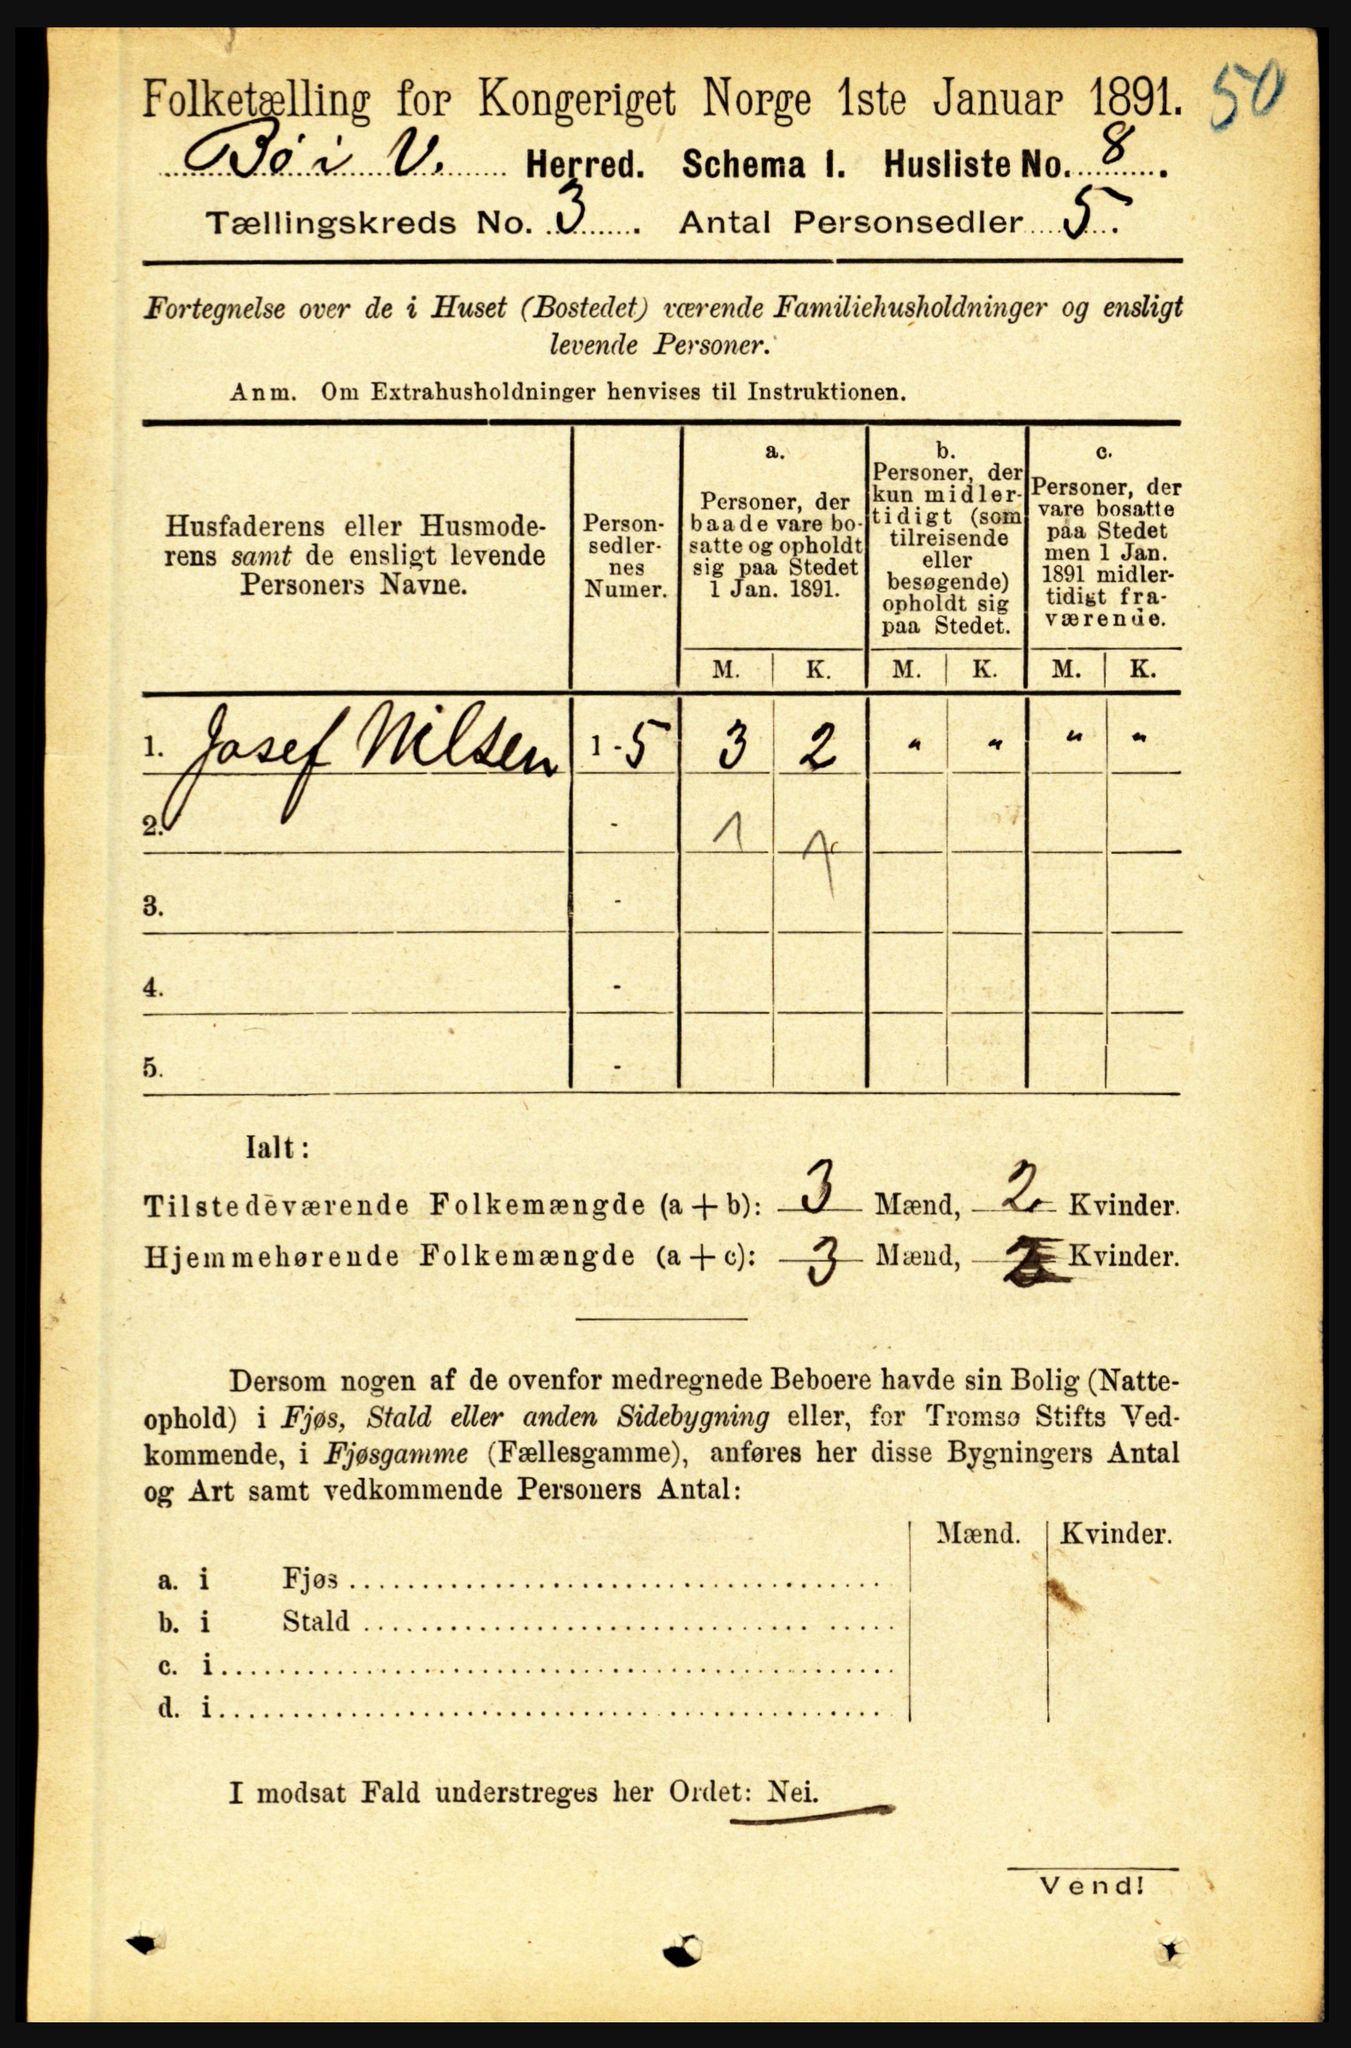 50
Folketælling for Kongeriget Norge 1ste Januar 1891.
Bö i V. Herred. Schema 1. Husliste No. 8.
Tællingskreds No. 3. Antal Personsedler 5.
Fortegnelse over de i Huset (Bostedet) værende Familiehusholdninger og ensligt
levende Personer.
Anm. Om Extrahusholdninger henvises til Instruktionen.
Husfaderens eller Husmode-
rens samt de ensligt levende
Personers Navne.
Person-
sedler-
nes
Numer.
a.
Personer, der
baade vare bo-
satte og opholdt
sig paa Stedet
1 Jan. 1891.
b.
Personer, der
kun midler-
tidigt (som
tilreisende
eller
besøgende)
opholdt sig
paa Stedet.
c.
Personer, der
vare bosatte
paa Stedet
men 1 Jan.
1891 midler-
tidigt fra-
værende.
M. K. M. K. M. K.
1. Josef Nilsen 1 - 5 3 2 " " " "
2. - 1 1
3. -
4. -
5. -
Ialt:
Tilstedeværende Folkemængde (a + b): 3 Mænd, 2 Kvinder.
Hjemmehørende Folkemængde (a + c): 3 Mænd, 2 Kvinder.
Dersom nogen af de ovenfor medregnede Beboere havde sin Bolig (Natte-
ophold) i Fjøs, Stald eller anden Sidebygning eller, for Tromsø Stifts Ved-
kommende, i Fjøsgamme (Fællesgamme), anføres her disse Bygningers Antal
og Art samt vedkommende Personers Antal:
Mænd. Kvinder.
a. i Fjøs
b. i Stald
c. i
d. i
I modsat Fald understreges her Ordet: Nei.
Vend!